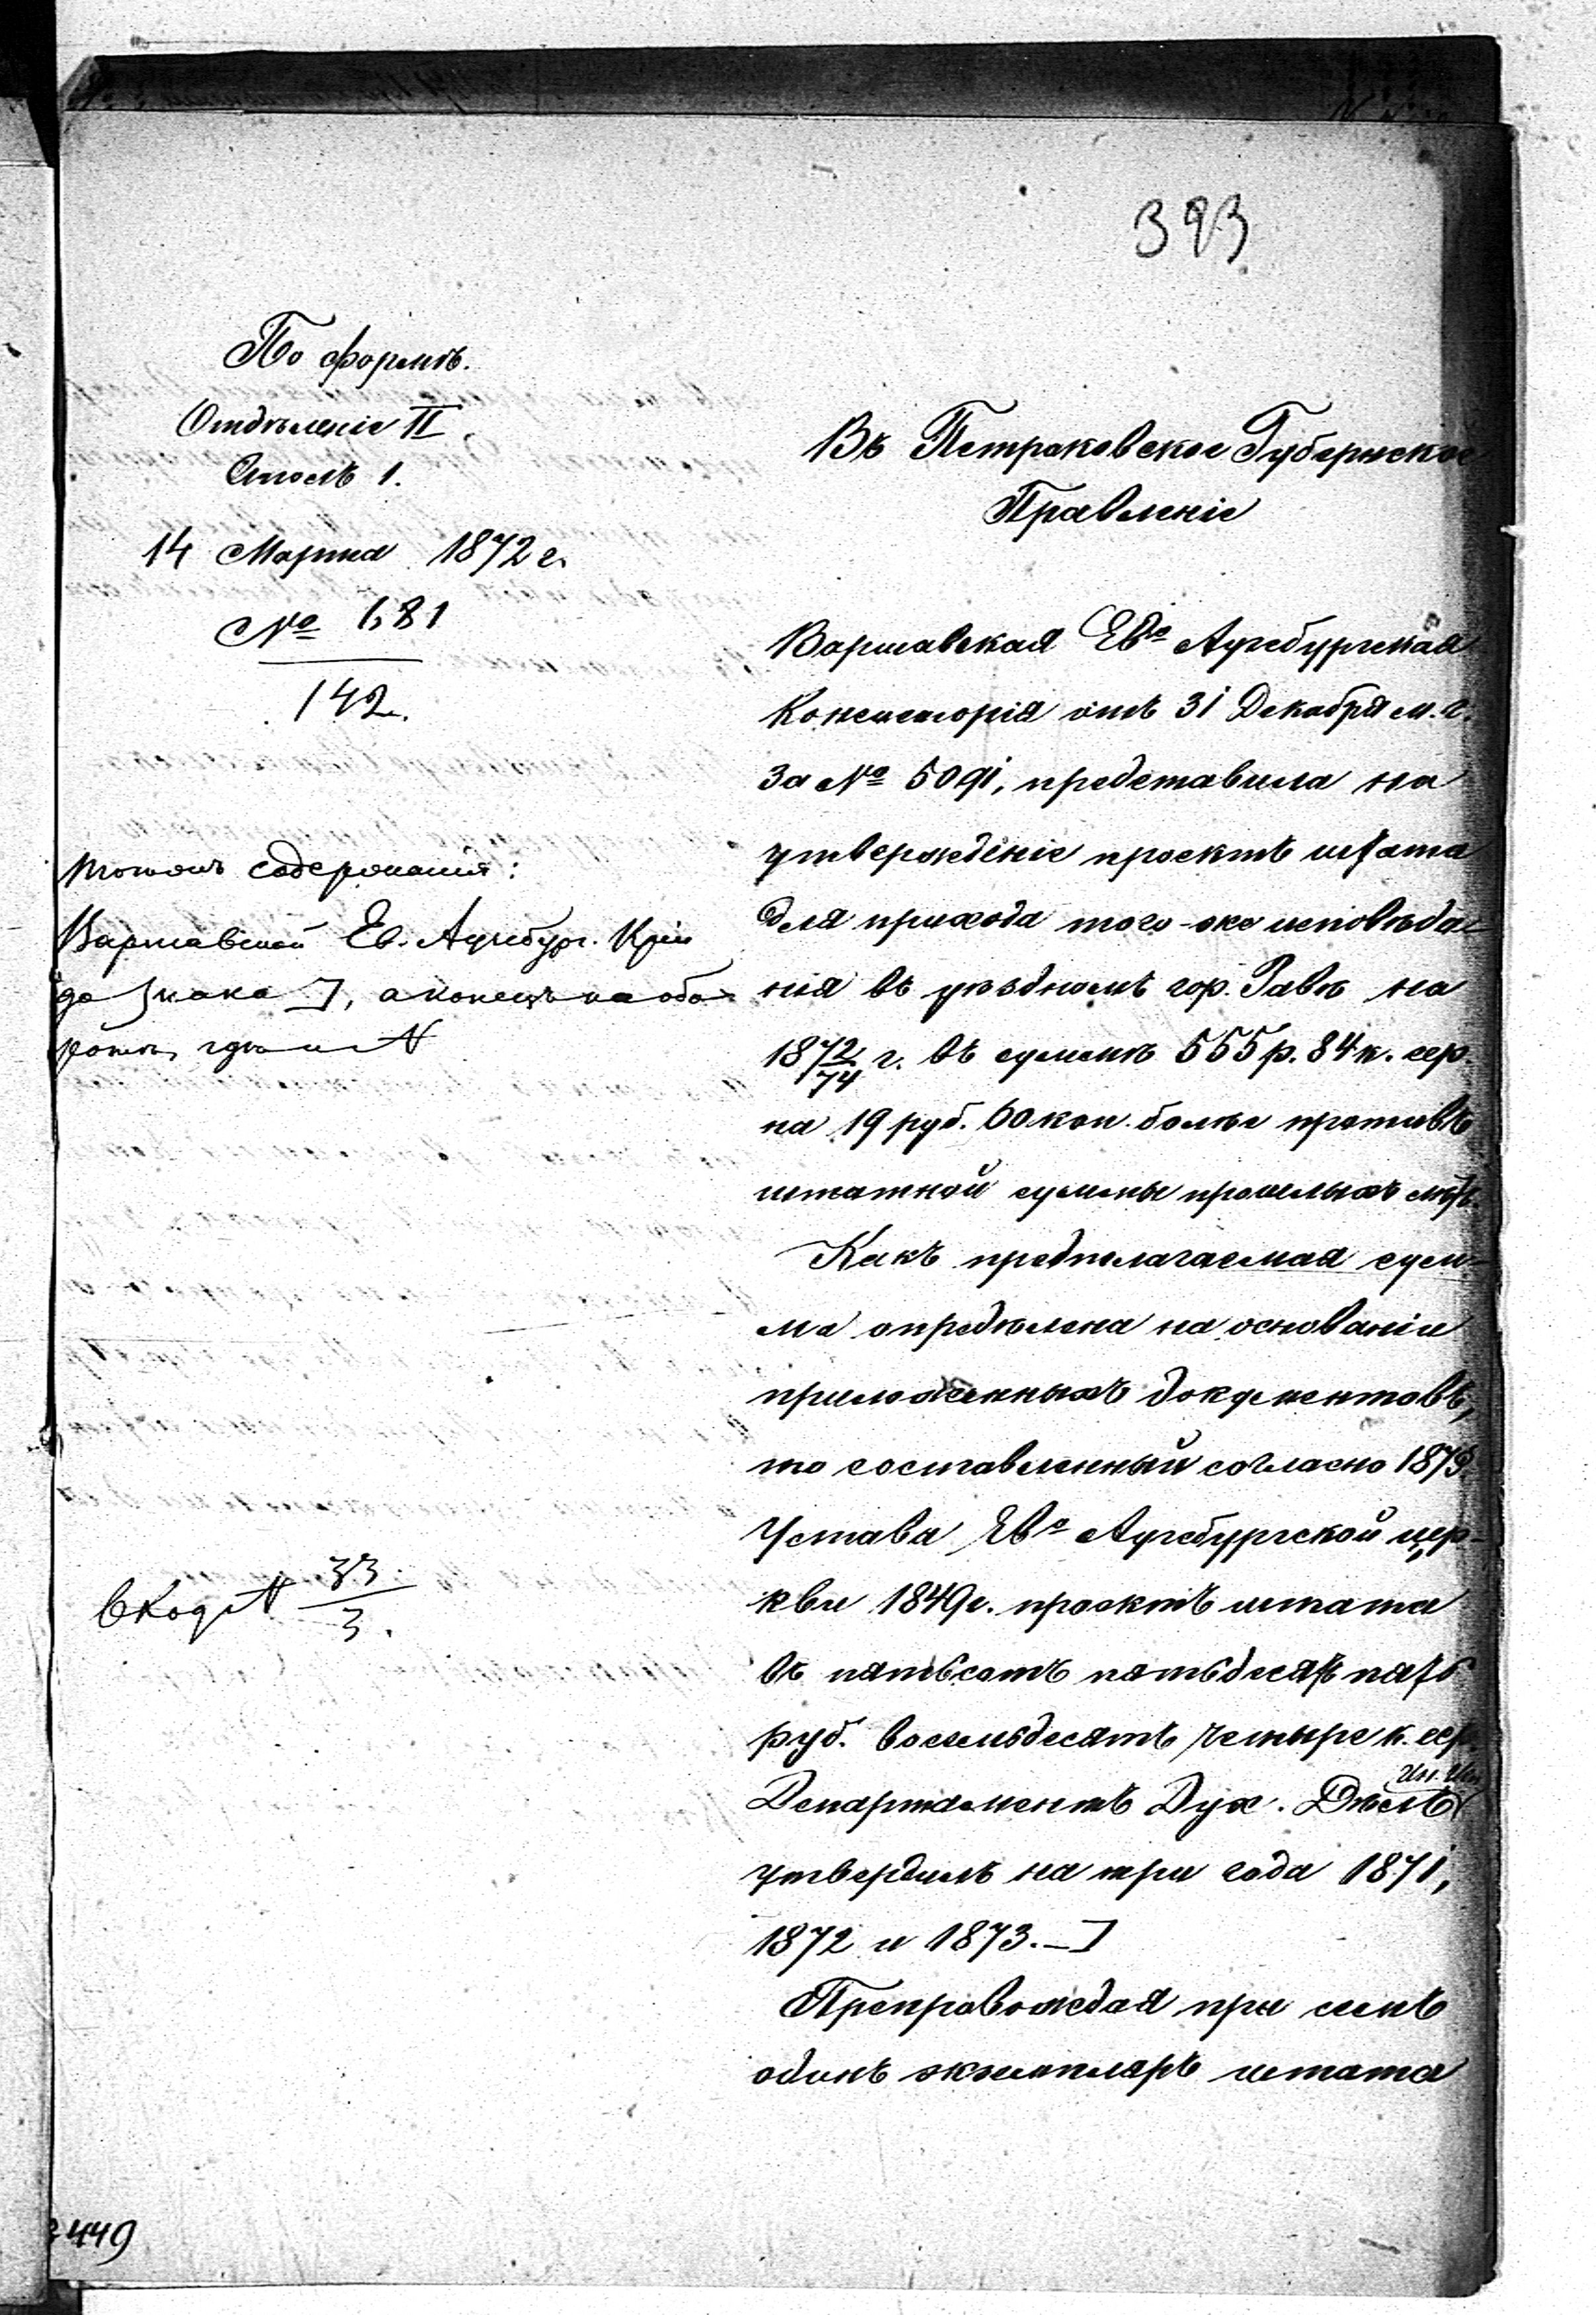 393
По формѣ.
Отдѣленіе II
Столъ 1.
14 Марта 1872 г.
№ 681
142.
содержанія:
Варшавской Ев. Аугсбург. Кціи
до знака ], а конецъ на обо-
ротѣ, гдѣ и №
вход № 33
3.
449
Въ Петроковское Губернское
Правленіе
Варшавская Ево Аугсбургская
Консисторія отъ 31 Декабря м. г.
за № 5091, представила на
утвержденіе проектъ штата
для прихода того-же исповѣда-
нія въ уѣздномъ гор. Равѣ на
1872/74 г. въ суммѣ 555 р. 84 к. сер.
на 19 руб. 60 коп. болѣе противъ
штатной суммы прошлыхъ лѣтъ.
Какъ предполагаемая сум-
ма опредѣлена на основаніи
приложенныхъ документовъ,
то составленный согласно 187 §
Устава Евo Аугсбургской цер-
кви 1849 г. проектъ штата
въ пятьсотъ пятьдесятъ пять
руб. восемьдесятъ четыре к. сер.
Департаментъ Дух. Дѣлъ Ин. Исп.
утвердилъ на три года 1871,
1872 и 1873. — ]
Препровождая при семъ
одинъ экземпляръ штата